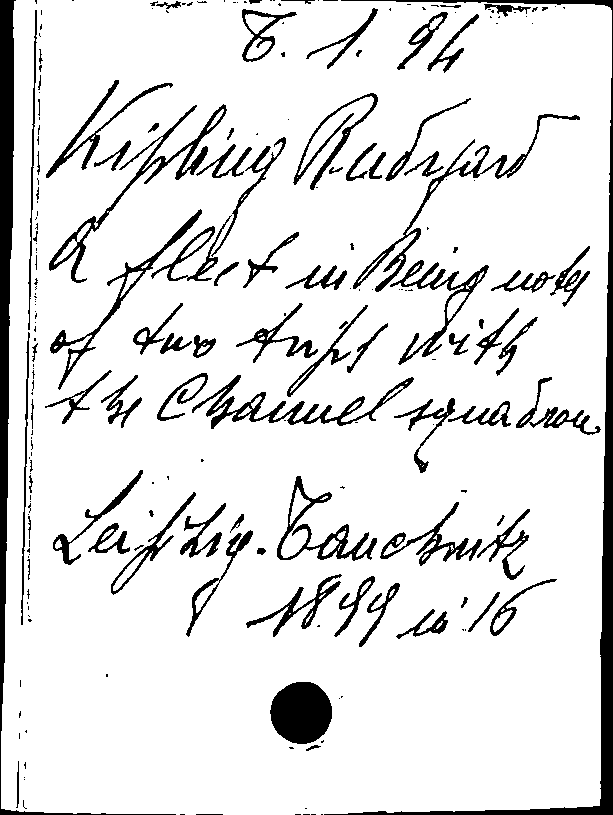 T. 1. 94
Kipling Rudyard
A fleet in Being notes
of two trips with
the Channel squadron
Leipzig. Tauchnitz
1899 in 16